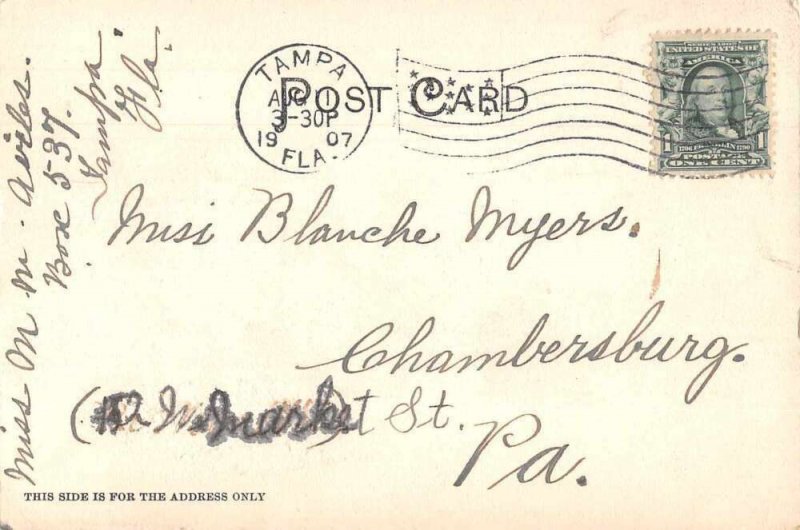 TAMPA
AUG
3-30P
19 07
FLA.
POST CARD
SERIES 1902
UNITED STATES OF
AMERICA
1706 FRANKLIN 1790
1 POSTAGE 1
ONE CENT
Miss M. M. Aviles.
Box 537.
Tampa
Fla.
Miss Blanche Myers.
Chambersburg.
Market St.
Pa.
THIS SIDE IS FOR THE ADDRESS ONLY